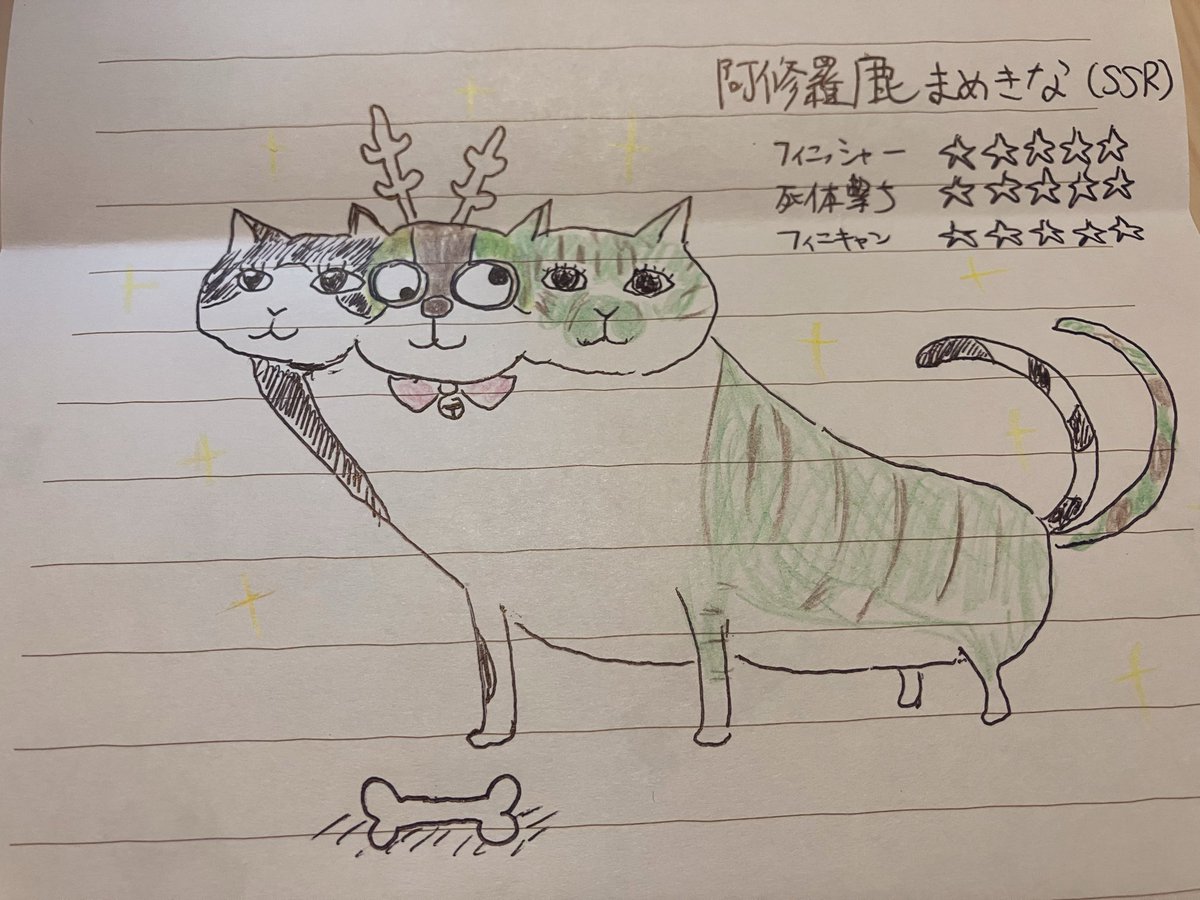 阿修羅鹿まめきな(SSR)
フィニッシャー ☆☆☆☆☆
死体撃ち ☆☆☆☆☆
フィニキャン ☆☆☆☆☆